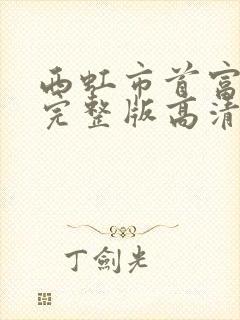 西虹市首富
完整版高清
丁劍光